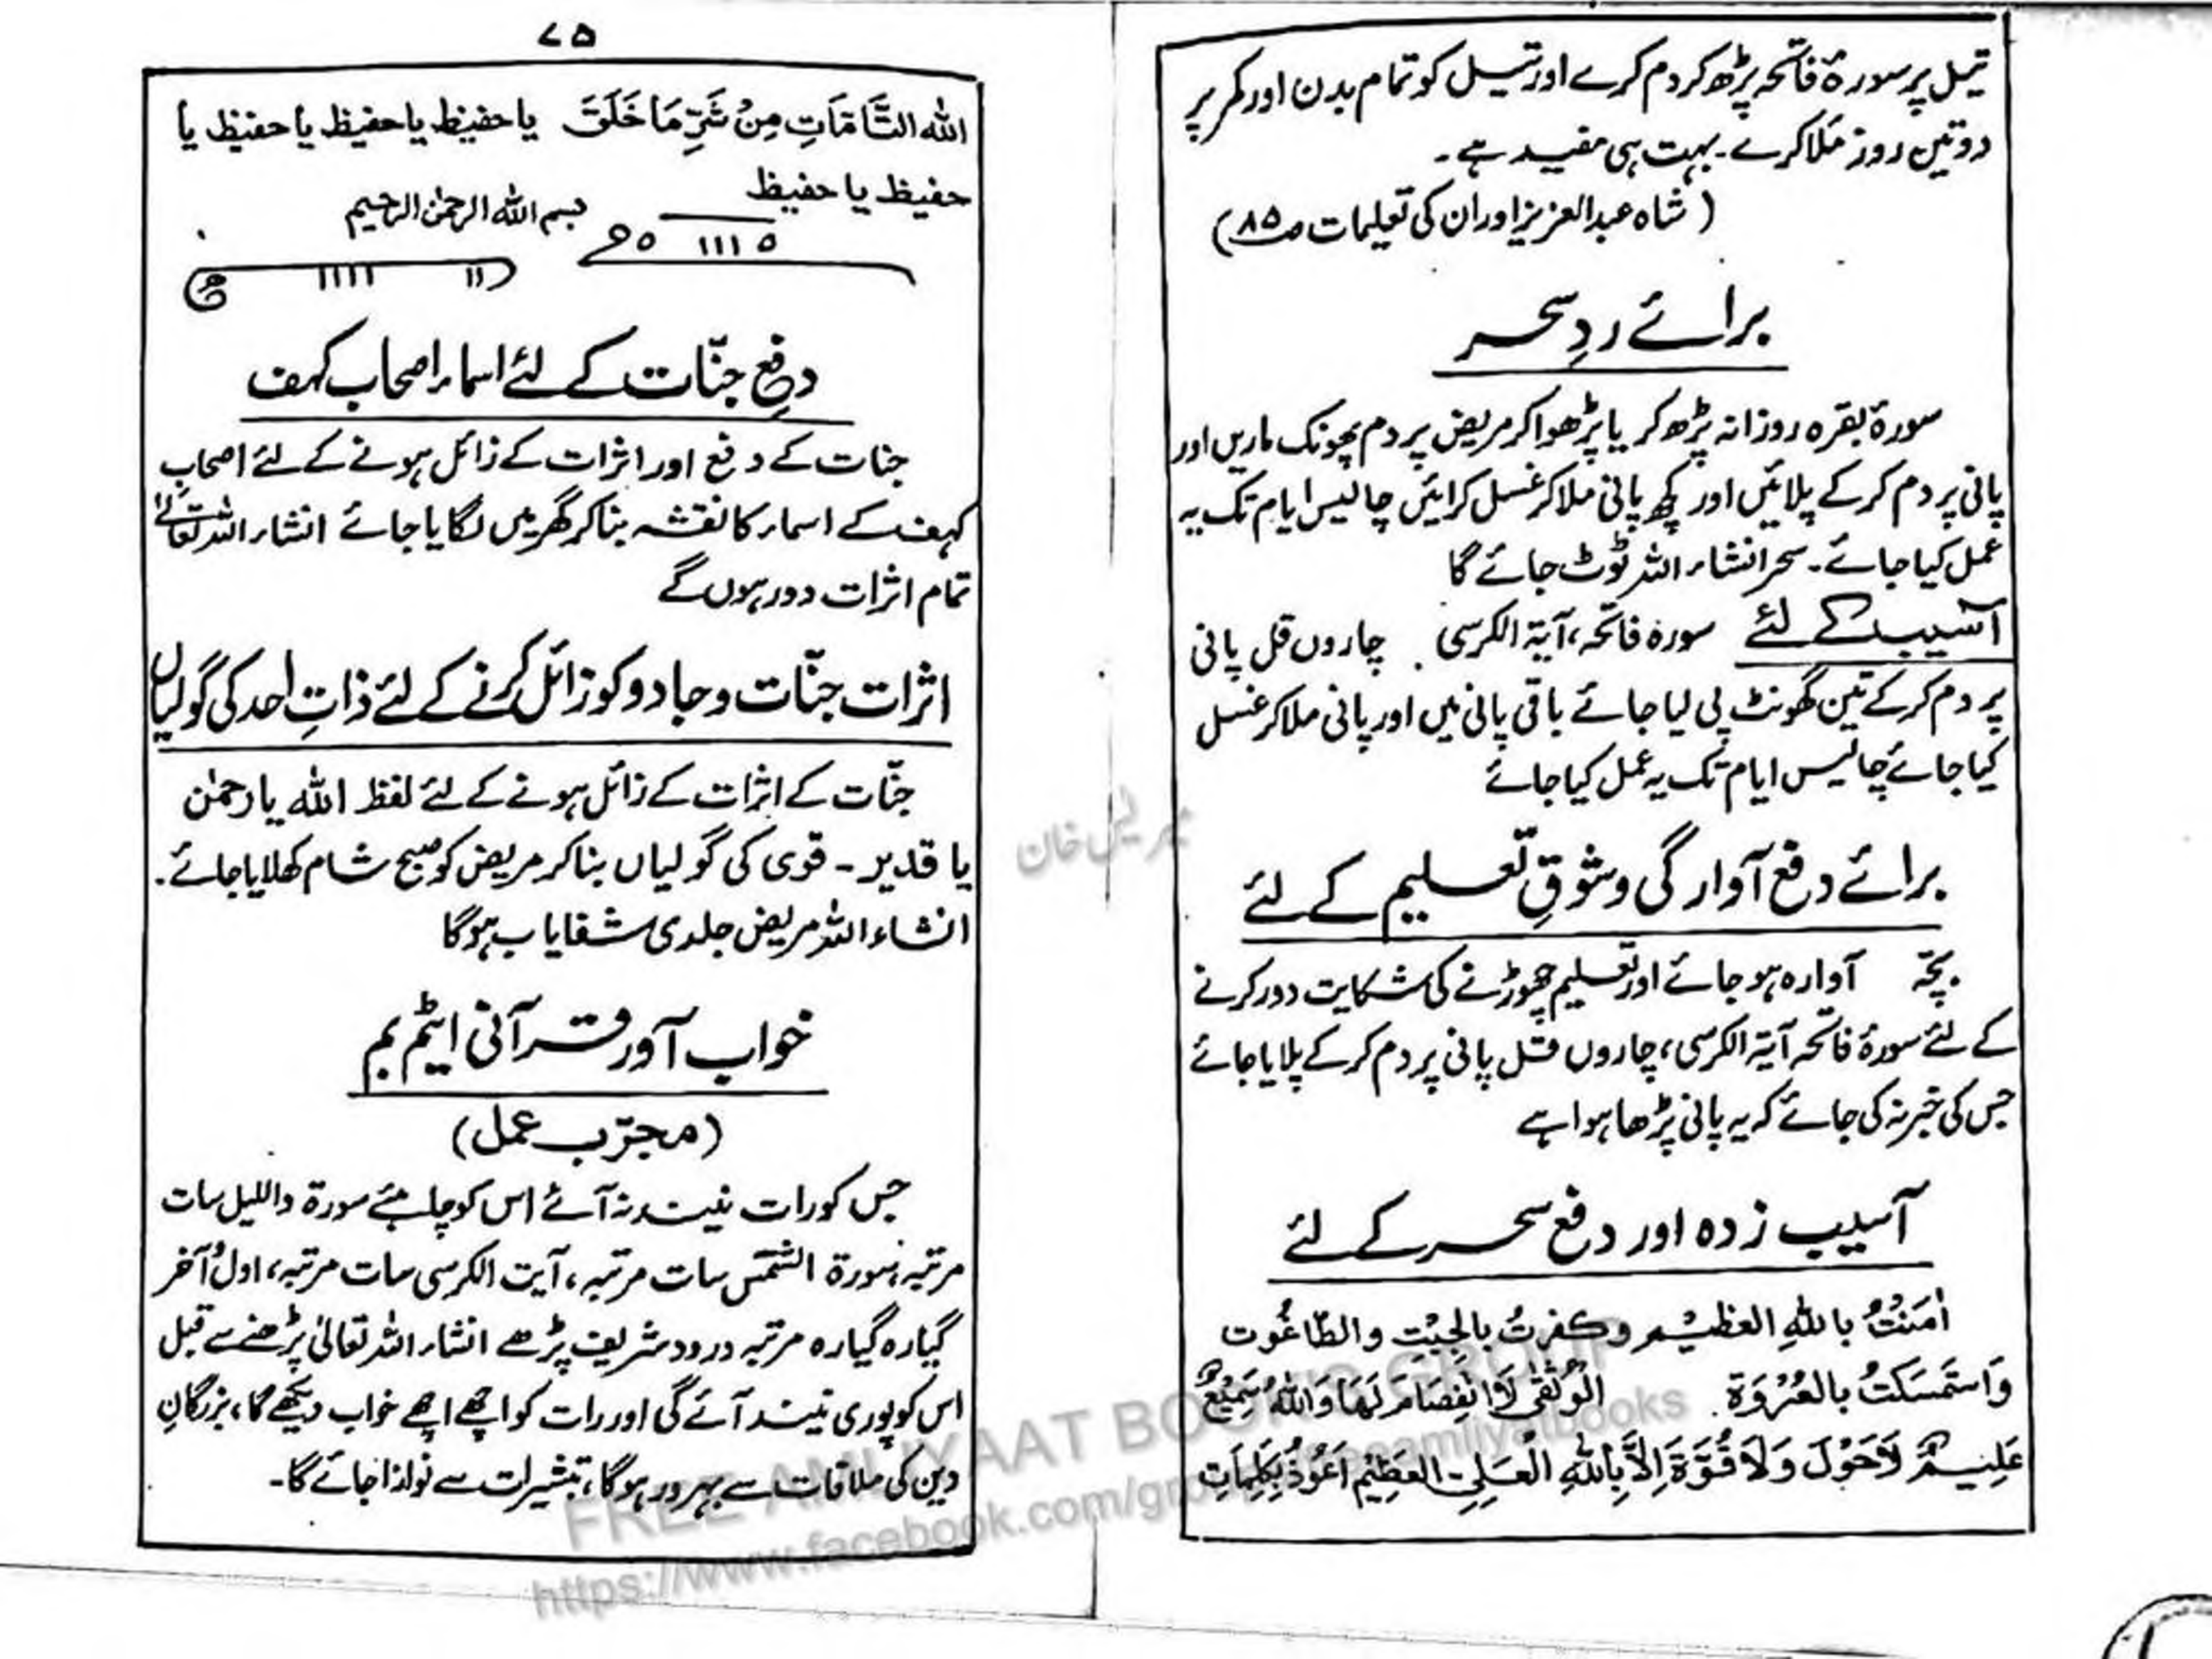 تیل پر سورۂ فاتحہ پڑھ کر دم کرے اور تیل کو تمام بدن اور کمر پر
دو تین روز ملا کرے۔ بہت ہی مفید ہے۔
(شاہ عبدالعزیز اور ان کی تعلیمات ص۸۵)
برائے ردِ سحر
سورۂ بقرہ روزانہ پڑھ کر یا پڑھوا کر مریض پر دم پھونک ماریں اور
پانی پر دم کر کے پلائیں اور کچھ پانی ملا کر غسل کرائیں چالیس ایام تک یہ
عمل کیا جائے۔ سحر انشاء اللہ ٹوٹ جائے گا
آسیب کے لئے سورہ فاتحہ، آیۃ الکرسی چاروں قل پانی
پر دم کر کے تین گھونٹ پی لیا جائے باقی پانی میں اور پانی ملا کر غسل
کیا جائے چالیس ایام تک یہ عمل کیا جائے
برائے دفع آوارگی و شوقِ تعلیم کے لئے
بچّہ آوارہ ہو جائے اور تعلیم چھوڑنے کی شکایت دور کرنے
کے لئے سورۂ فاتحہ آیۃ الکرسی، چاروں قل پانی پر دم کر کے پلایا جائے
جس کی خبر نہ کی جائے کہ یہ پانی پڑھا ہوا ہے
آسیب زدہ اور دفع سحر کے لئے
اٰمَنْتُ بِاللهِ العظیْم وکفرتُ بِالجِبْتِ والطّاغُوت
وَاستَمسَکتُ بالعُرْوَۃ الْوُثقٰی لَا انْفِصَامَ لَهَا وَاللهُ سَمِیْعٌ
عَلِیْمٌ لَاحَوْلَ وَلَا قُوَّةَ اِلَّا بِاللهِ الْعَلِیِ العَظِیْمِ اَعُوْذُ بِکَلِمَاتِ
۷۵
الله التَّامَّاتِ مِنْ شَرِّ مَا خَلَقَ یا حفیظ یا حفیظ یا حفیظ یا
حفیظ یا حفیظ
بسم الله الرحمٰن الرحیم
دفعِ جنّات کے لئے اسماء اصحاب کہف
جنات کے دفع اور اثرات کے زائل ہونے کے لئے اصحابِ
کہف کے اسماء کا نقشہ بنا کر گھر میں لگایا جائے انشاء اللہ تعالیٰ
تمام اثرات دور ہوں گے
اثرات جنّات و جادو کو زائل کرنے کے لئے ذاتِ احد کی گولیاں
جنّات کے اثرات کے زائل ہونے کے لئے لفظ اللہ یا رحمٰن
یا قدیر - قوی کی گولیاں بنا کر مریض کو صبح شام کھلایا جائے۔
انشاء اللہ مریض جلدی شفایاب ہو گا
خواب آور قرآنی ایٹم بم
(مجرّب عمل)
جس کو رات نیند نہ آئے اس کو چاہئے سورۃ واللیل سات
مرتبہ، سورۃ الشمس سات مرتبہ، آیت الکرسی سات مرتبہ، اول آخر
گیارہ گیارہ مرتبہ درود شریف پڑھے انشاء اللہ تعالیٰ پڑھنے سے قبل
اس کو پوری نیند آئے گی اور رات کو اچھے اچھے خواب دیکھے گا، بزرگانِ
دین کی ملاقات سے بہرہ ور ہو گا، تبشیرات سے نوازا جائے گا۔
FREE AMLIYAAT BOOKS GROUP
https://www.facebook.com/groups/freeamliyatbooks